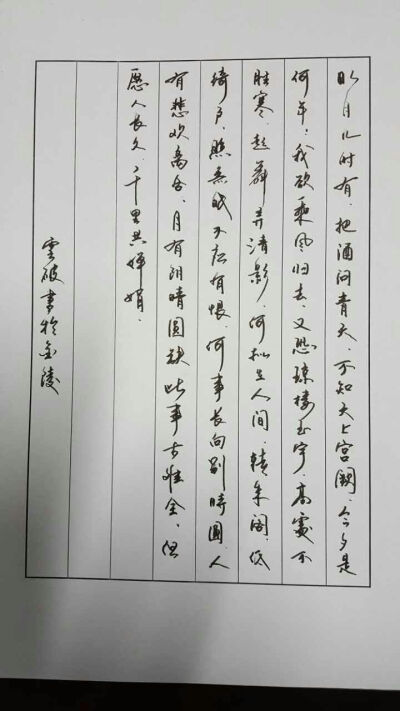 明月几时有、把酒问青天、不知天上宫阙、今夕是
何年、我欲乘风归去、又恐琼楼玉宇、高處不
胜寒、起舞弄清影、何似在人间、转朱阁、低
绮户、照无眠、不应有恨、何事长向别時圆、人
有悲欢离合、月有阴晴圆缺、此事古难全、但
愿人长久、千里共婵娟、
雲破書於金陵